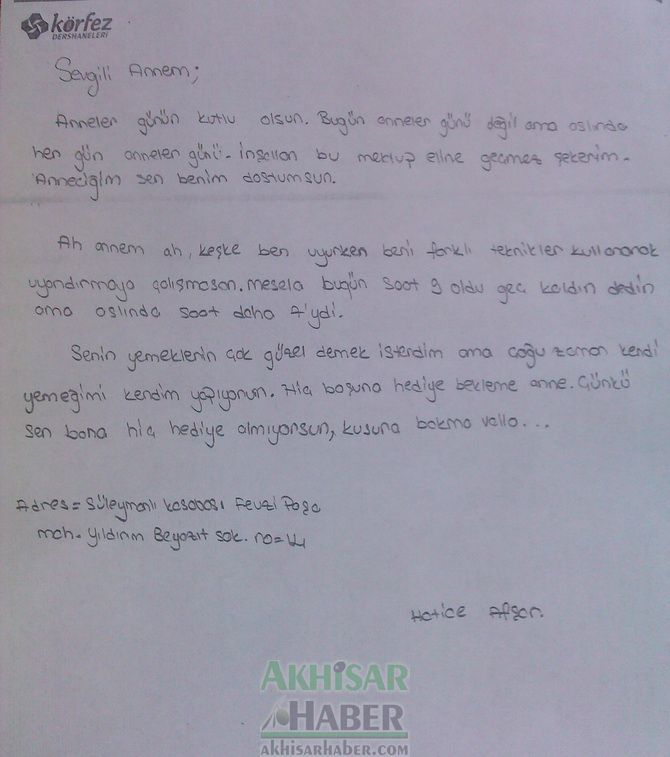 körfez
DERSHANELERİ
Sevgili Annem;
Anneler günün kutlu olsun. Bugün anneler günü değil ama aslında
her gün anneler günü. İnşallah bu mektup eline geçmez şekerim.
Anneciğim sen benim dostumsun.
Ah annem ah, keşke ben uyurken beni farklı teknikler kullanarak
uyandırmaya çalışmasan. mesela bugün saat 9 oldu geç kaldın dedin
ama aslında saat daha 7'ydi.
Senin yemeklerin çok güzel demek isterdim ama çoğu zaman kendi
yemeğimi kendim yapıyorum. Hiç boşuna hediye bekleme anne. Çünkü
sen bana hiç hediye almıyorsun, kusura bakma valla...
Adres = Süleymanlı kasabası Fevzi Paşa
mah. Yıldırım Beyazıt sok. no=
Hatice Afşar.
AKHİSAR
HABER
akhisarhaber.com